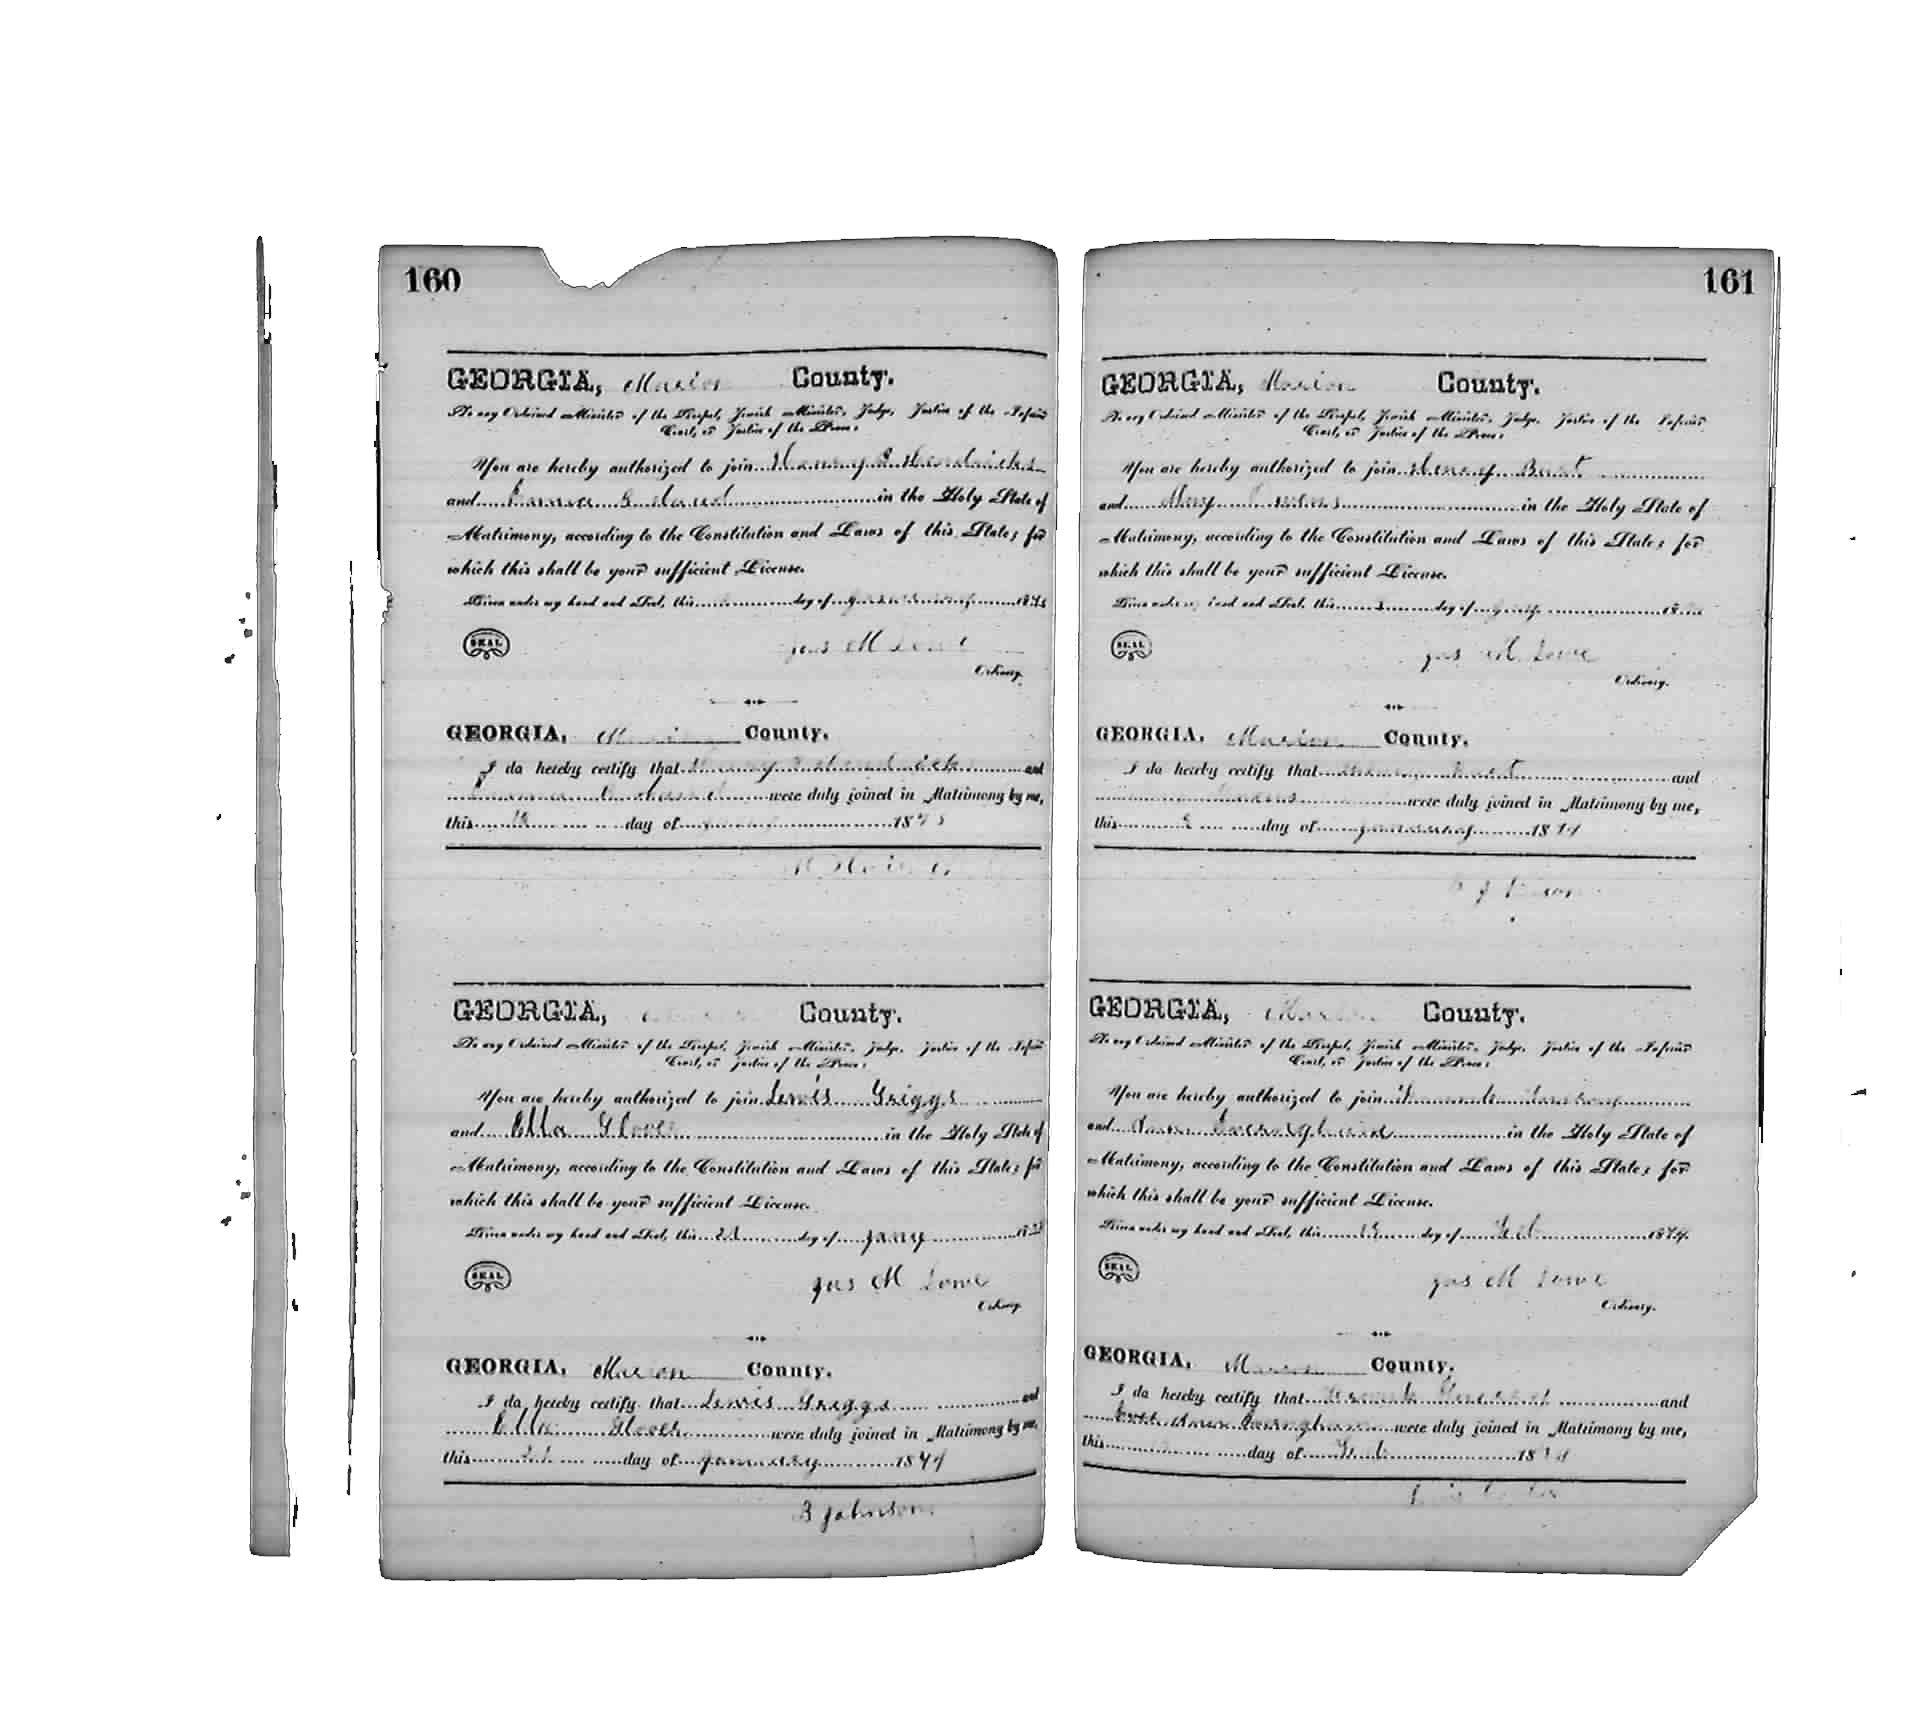 160
GEORGIA, Marion County.
To any Ordained Minister of the Gospel, Jewish Minister, Judge, Justice of the Inferior
Court, or Justice of the Peace:
You are hereby authorized to join Henry Hendricks
and in the Holy State of
Matrimony, according to the Constitution and Laws of this State; for
which this shall be your sufficient License.
Given under my hand and Seal, this day of January 187
SEAL
Jas M Lowe
Ordinary.
GEORGIA, Marion County.
I do hereby certify that Henry Hendricks and
were duly joined in Matrimony by me,
this day of 187
GEORGIA, County.
To any Ordained Minister of the Gospel, Jewish Minister, Judge, Justice of the Inferior
Court, or Justice of the Peace:
You are hereby authorized to join Lewis Griggs
and Ella Glover in the Holy State of
Matrimony, according to the Constitution and Laws of this State; for
which this shall be your sufficient License.
Given under my hand and Seal, this 21 day of Jany 18
SEAL
Jas M Lowe
Ordinary.
GEORGIA, Marion County.
I do hereby certify that Lewis Griggs and
Ella Glover were duly joined in Matrimony by me,
this 21 day of January 1874
B Johnson
161
GEORGIA, Marion County.
To any Ordained Minister of the Gospel, Jewish Minister, Judge, Justice of the Inferior
Court, or Justice of the Peace:
You are hereby authorized to join Henry Burt
and Mary Owens in the Holy State of
Matrimony, according to the Constitution and Laws of this State; for
which this shall be your sufficient License.
Given under my hand and Seal, this day of Jany 18
SEAL
Jas M Lowe
Ordinary.
GEORGIA, Marion County.
I do hereby certify that Burt and
Owens were duly joined in Matrimony by me,
this day of January 1874
GEORGIA, Marion County.
To any Ordained Minister of the Gospel, Jewish Minister, Judge, Justice of the Inferior
Court, or Justice of the Peace:
You are hereby authorized to join
and in the Holy State of
Matrimony, according to the Constitution and Laws of this State; for
which this shall be your sufficient License.
Given under my hand and Seal, this day of Feb 1874
SEAL
Jas M Lowe
Ordinary.
GEORGIA, Marion County.
I do hereby certify that and
were duly joined in Matrimony by me,
this day of Feb 18